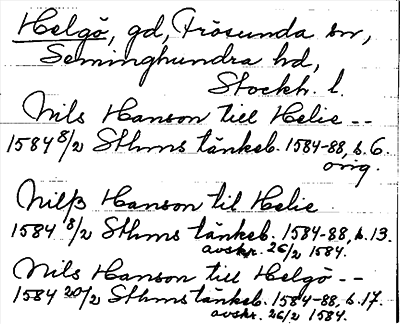 Helgö, gd, Frösunda sn,
Seminghundra hd,
Stockh. l.
Nils Hanson till Helie --
1584 8/2 Sthms tänkeb. 1584-88, b. 6.
orig.
Nilß Hanson til Helie
1584 8/2 Sthms tänkeb. 1584-88, b. 13.
avskr. 26/2 1584.
Nils Hanson till Helgö --
1584 20/2 Sthms tänkeb. 1584-88, b. 17.
avskr. 26/2 1584.